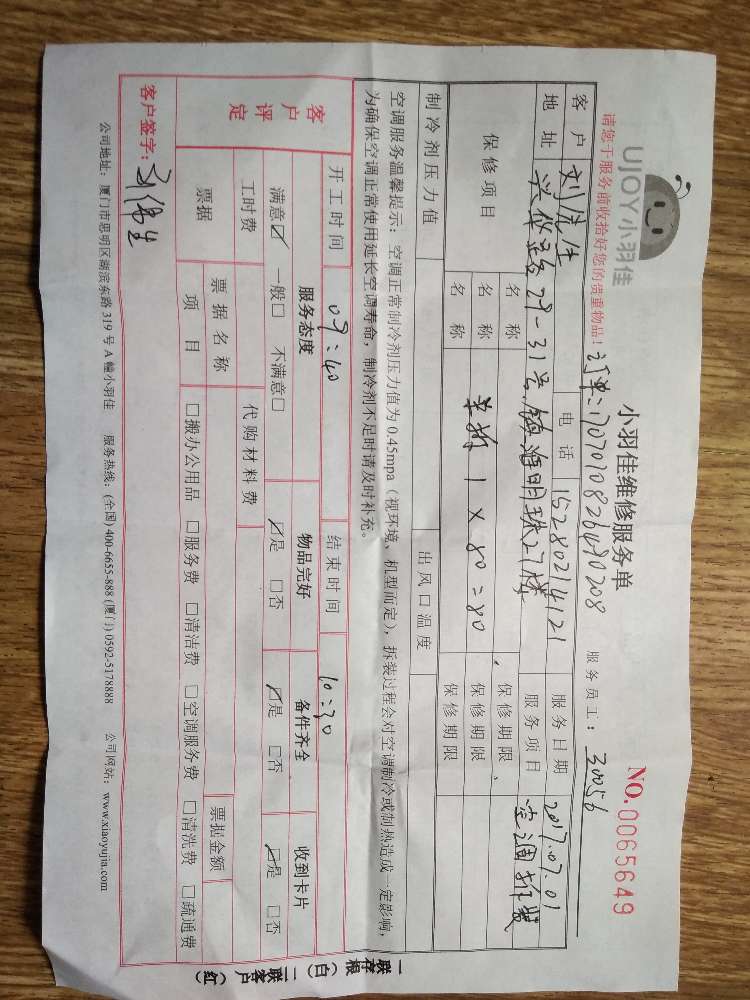 UJOY小羽佳
小羽佳维修服务单
NO.0065649
请您于服务前收拾好您的贵重物品！ 订单:170701082640208 服务员工： 30056
客户 刘先生 电话 15280214121 服务日期 2017.07.01
地址 兴华路29-31号 镇海明珠27楼 服务项目 空调拆装
保修项目 名称 保修期限
名称 单拆 1×80=80 保修期限
名称 保修期限
制冷剂压力值 出风口温度
空调服务温馨提示：空调正常制冷剂压力值为 0.45mpa（视环境、机型而定），拆装过程会对空调制冷或制热造成一定影响，
为确保空调正常使用延长空调寿命，制冷剂不足时请及时补充。
客户评定 开工时间 09:40 结束时间 10:30
服务态度 物品完好 备件齐全 收到卡片
满意☑ 一般□ 不满意□ ☑是 □否 ☑是 □否 ☑是 □否
工时费 代购材料费
票据 票据名称 票据金额
项目 □搬办公用品 □服务费 □清洁费 □空调服务费 □清洗费 □疏通费
客户签字：
公司地址：厦门市思明区湖滨东路 319 号 A 幢小羽佳 服务热线：(全国) 400-6655-888 (厦门) 0592-5178888 公司网站：www.xiaoyujia.com
一联存根（白）二联客户（红）